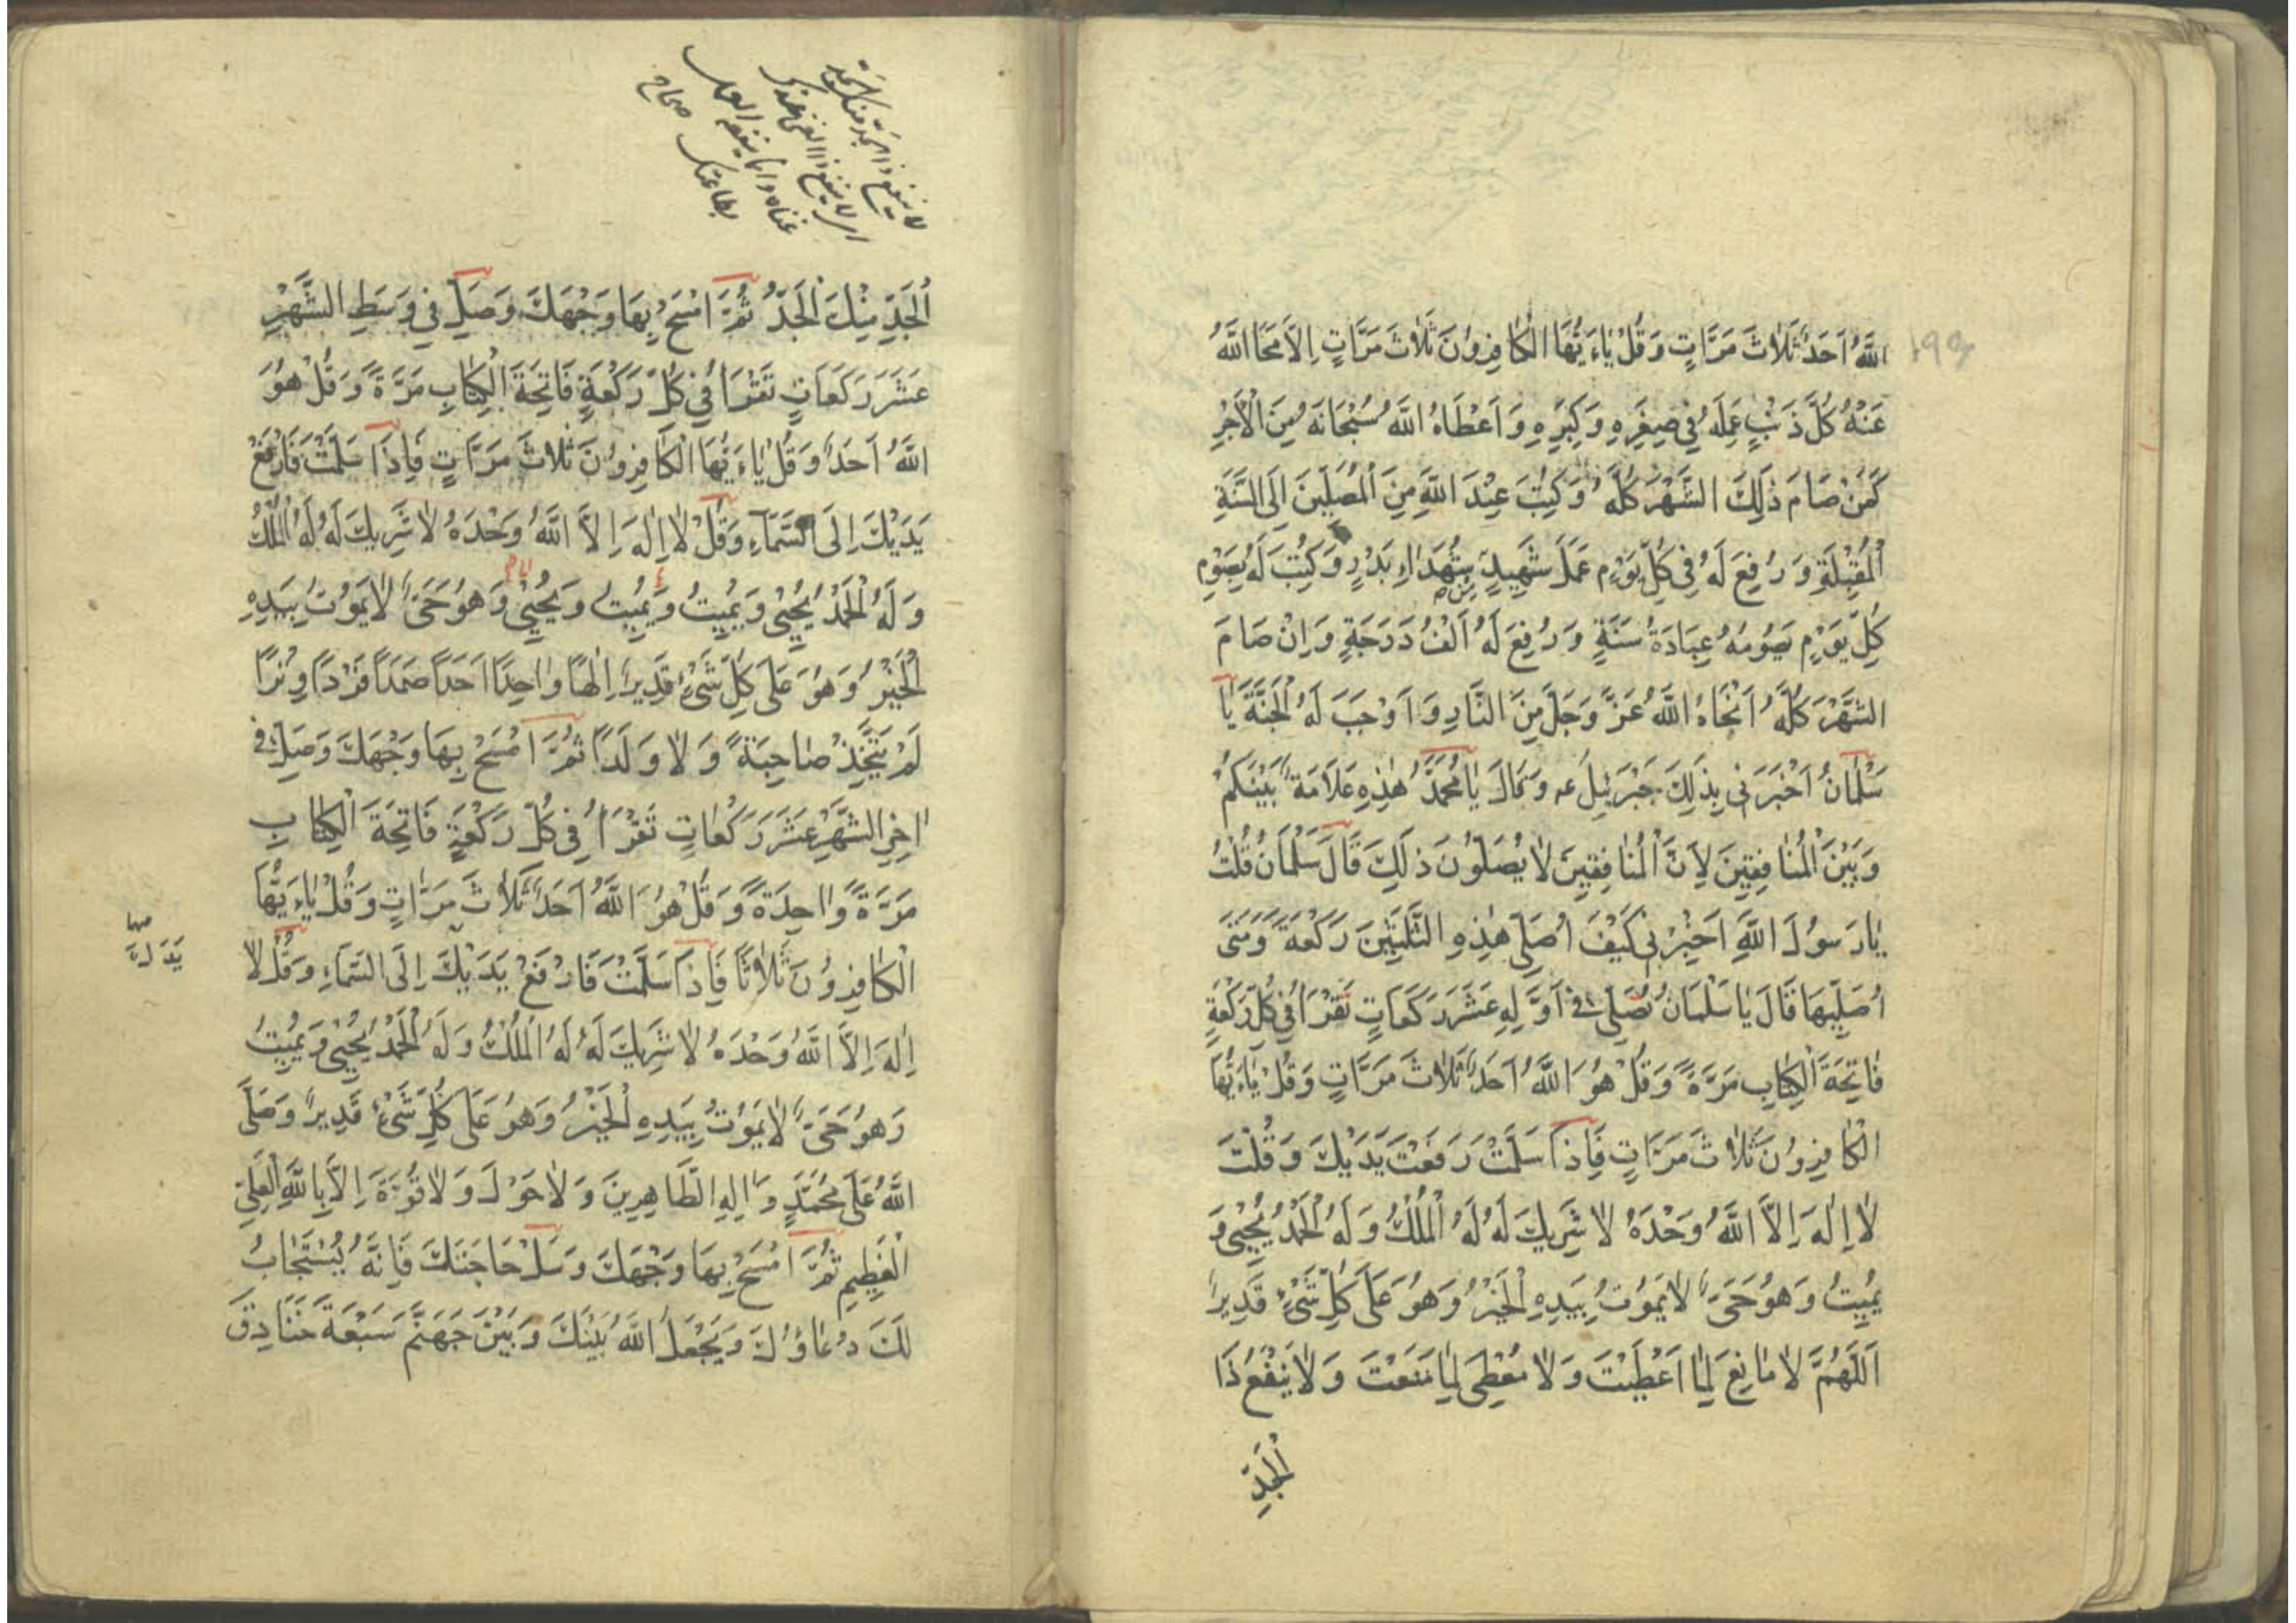 اللَّهُ اَحَدٌ ثَلَاثَ مَرَّاتٍ وَ قُلْ يَاءَيُّهَا الْكَافِرُونَ ثَلَاثَ مَرَّاتٍ اِلَّا مَحَا اللَّهُ
عَنْهُ كُلَّ ذَنْبٍ عَمِلَهُ فِي صِغَرِهِ وَ كِبَرِهِ وَ اَعْطَاهُ اللَّهُ سُبْحَانَهُ مِنَ الْاَجْرِ
كَمَنْ صَامَ ذَلِكَ الشَّهْرَ كُلَّهُ وَ كُتِبَ عِنْدَ اللَّهِ مِنَ الْمُصَلِّينَ اِلَى السَّنَةِ
الْمُقْبِلَةِ وَ رُفِعَ لَهُ فِي كُلِّ يَوْمٍ عَمَلُ شَهِيدٍ مِنْ شُهَدَاءِ بَدْرٍ وَ كُتِبَ لَهُ بِصَوْمِ
كُلِّ يَوْمٍ يَصُومُهُ عِبَادَةُ سَنَةٍ وَ رُفِعَ لَهُ اَلْفُ دَرَجَةٍ وَ اِنْ صَامَ
الشَّهْرَ كُلَّهُ اَنْجَاهُ اللَّهُ عَزَّ وَ جَلَّ مِنَ النَّارِ وَ اَوْجَبَ لَهُ الْجَنَّةَ يَا
سَلْمَانُ اَخْبَرَنِي بِذَلِكَ جَبْرَئِيلُ عه وَ قَالَ يَا مُحَمَّدُ هَذِهِ عَلَامَةٌ بَيْنَكُمْ
وَ بَيْنَ الْمُنَافِقِينَ لِاَنَّ الْمُنَافِقِينَ لَا يُصَلُّونَ ذَلِكَ قَالَ سَلْمَانُ قُلْتُ
يَا رَسُولَ اللَّهِ اَخْبِرْنِي كَيْفَ اُصَلِّي هَذِهِ الثَّلَثِينَ رَكْعَةً وَ مَتَى
اُصَلِّيهَا قَالَ يَا سَلْمَانُ تُصَلِّي فِي اَوَّلِهِ عَشَرَ رَكَعَاتٍ تَقْرَأُ فِي كُلِّ رَكْعَةٍ
فَاتِحَةَ الْكِتَابِ مَرَّةً وَ قُلْ هُوَ اللَّهُ اَحَدٌ ثَلَاثَ مَرَّاتٍ وَ قُلْ يَاءَيُّهَا
الْكَافِرُونَ ثَلَاثَ مَرَّاتٍ فَاِذَا سَلَّمْتَ رَفَعْتَ يَدَيْكَ وَ قُلْتَ
لَا اِلَهَ اِلَّا اللَّهُ وَحْدَهُ لَا شَرِيكَ لَهُ لَهُ الْمُلْكُ وَ لَهُ الْحَمْدُ يُحْيِي وَ
يُمِيتُ وَ هُوَ حَيٌّ لَا يَمُوتُ بِيَدِهِ الْخَيْرُ وَ هُوَ عَلَى كُلِّ شَيْءٍ قَدِيرٌ
اَللَّهُمَّ لَا مَانِعَ لِمَا اَعْطَيْتَ وَ لَا مُعْطِيَ لِمَا مَنَعْتَ وَ لَا يَنْفَعُ ذَا
الْجَدِّ
لا ينفع ذا الجد منك الجد
اى لا ينفع ذا الغنى عندك
غناه و انما ينفعه العمل
بطاعتك صحاح
الْجَدِّ مِنْكَ الْجَدُّ ثُمَّ امْسَحْ بِهَا وَجْهَكَ وَ صَلِّ فِي وَسَطِ الشَّهْرِ
عَشَرَ رَكَعَاتٍ تَقْرَأُ فِي كُلِّ رَكْعَةٍ فَاتِحَةَ الْكِتَابِ مَرَّةً وَ قُلْ هُوَ
اللَّهُ اَحَدٌ وَ قُلْ يَاءَيُّهَا الْكَافِرُونَ ثَلَاثَ مَرَّاتٍ فَاِذَا سَلَّمْتَ فَارْفَعْ
يَدَيْكَ اِلَى السَّمَاءِ وَ قُلْ لَا اِلَهَ اِلَّا اللَّهُ وَحْدَهُ لَا شَرِيكَ لَهُ لَهُ الْمُلْكُ
وَ لَهُ الْحَمْدُ يُحْيِي وَ يُمِيتُ وَ يُمِيتُ وَ يُحْيِي وَ هُوَ حَيٌّ لَا يَمُوتُ بِيَدِهِ
الْخَيْرُ وَ هُوَ عَلَى كُلِّ شَيْءٍ قَدِيرٌ اِلَهًا وَاحِدًا اَحَدًا صَمَدًا فَرْدًا وِتْرًا
لَمْ يَتَّخِذْ صَاحِبَةً وَ لَا وَلَدًا ثُمَّ امْسَحْ بِهَا وَجْهَكَ وَ صَلِّ فِي
اٰخِرِ الشَّهْرِ عَشَرَ رَكَعَاتٍ تَقْرَأُ فِي كُلِّ رَكْعَةٍ فَاتِحَةَ الْكِتَابِ
مَرَّةً وَاحِدَةً وَ قُلْ هُوَ اللَّهُ اَحَدٌ ثَلَاثَ مَرَّاتٍ وَ قُلْ يَاءَيُّهَا
الْكَافِرُونَ ثَلَاثًا فَاِذَا سَلَّمْتَ فَارْفَعْ يَدَيْكَ اِلَى السَّمَاءِ وَ قُلْ لَا
اِلَهَ اِلَّا اللَّهُ وَحْدَهُ لَا شَرِيكَ لَهُ لَهُ الْمُلْكُ وَ لَهُ الْحَمْدُ يُحْيِي وَ يُمِيتُ
وَ هُوَ حَيٌّ لَا يَمُوتُ بِيَدِهِ الْخَيْرُ وَ هُوَ عَلَى كُلِّ شَيْءٍ قَدِيرٌ وَ صَلَّى
اللَّهُ عَلَى مُحَمَّدٍ وَ اٰلِهِ الطَّاهِرِينَ وَ لَا حَوْلَ وَ لَا قُوَّةَ اِلَّا بِاللَّهِ الْعَلِيِّ
الْعَظِيمِ ثُمَّ امْسَحْ بِهَا وَجْهَكَ وَ سَلْ حَاجَتَكَ فَاِنَّهُ يُسْتَجَابُ
لَكَ دُعَاؤُكَ وَ يَجْعَلُ اللَّهُ بَيْنَكَ وَ بَيْنَ جَهَنَّمَ سَبْعَةَ خَنَادِقَ